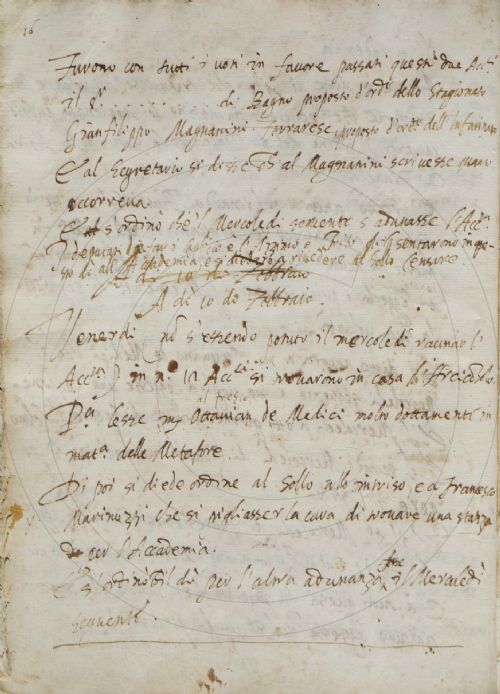 16
Furono con tutti i voti in favore passati questi due Acc.ci
il S.r . . . . . . di Bagno proposto d'ord.e dello Stagionato
Gianfilippo Magnanini ferrarese, proposto d'ord.e dell'Infarinato
E al Segretario si disse ch' al Magnanini scrivesse quanto
occorreva.
E s'ordinò che 'l Mercoledì seguente s'adunasse l'Acc.a
di all' e si a rivedere al Sollo Censure.
A dì 10 do Febbraio
A dì 10 do Febbraio.
Venerdì (nō s'essendo potuto il mercoledì raunar l'
Acc.a) in n.o 12 Acc.ci si trovarono in casa l'Arciconsolo
al fresco
Do. lesse m. Ottavian de Medici molto dottamente in
mat.a delle Metafore.
Di poi si diede ordine al Sollo allo intriso, e a Francesco
Marinozzi che si pigliasser la cura di trovare una stanza
per l'Accademia.
E s'ordinò il dì per l'altra adunanza, il Mercoledì
seguente.